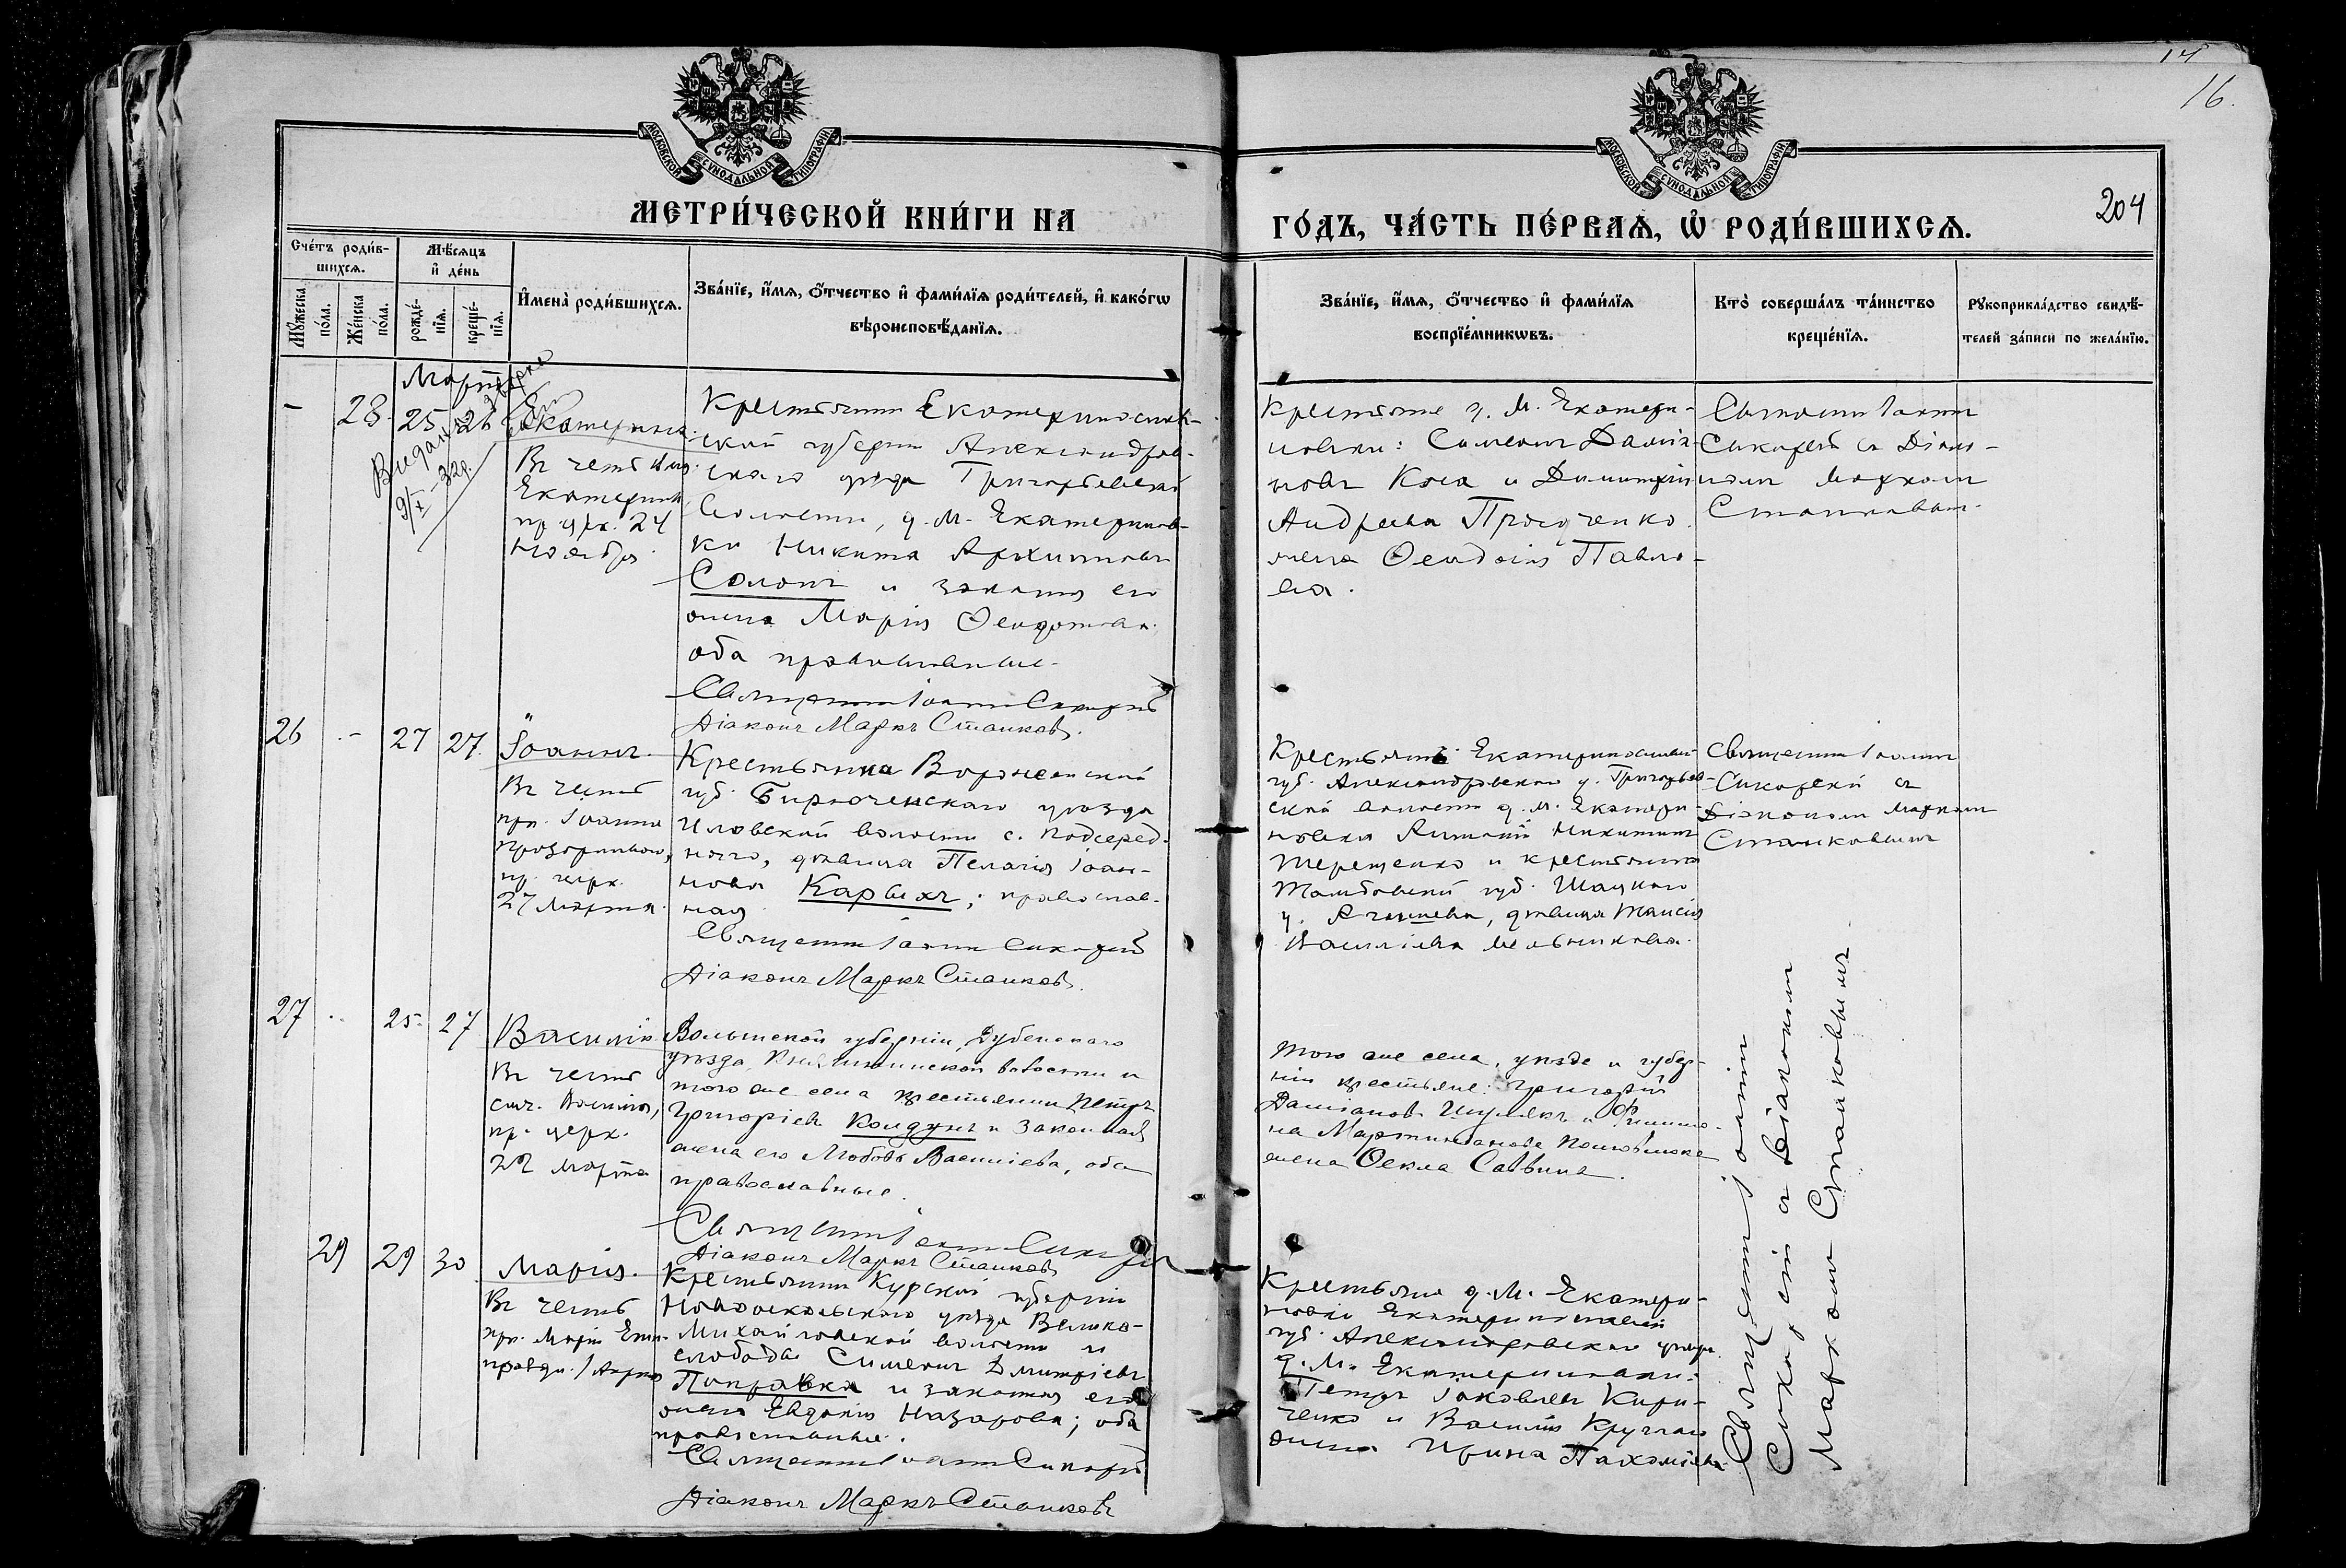 14
16.
МОСКОВСКОЙ СУНОДАЛЬНОЙ ТИПОГРАФІИ
МОСКОВСКОЙ СУНОДАЛЬНОЙ ТИПОГРАФІИ
МЕТРИ́ЧЕСКОЙ КНИ́ГИ НА
ГО́ДЪ, ЧА́СТЬ ПЕ́РВАѦ, Ѡ РОДИ́ВШИХСѦ.
204
Сче́тъ роди́в-
шихсѧ.
Мѣ́сѧцъ
и҆ де́нь
Мꙋ́жеска
по́ла.
Же́нска
по́ла.
рожде́-
нїѧ.
креще́-
нїѧ.
И҆мена̀ роди́вшихсѧ.
Зва́нїе, и҆́мѧ, ѻ҆́тчество и҆ фами́лїѧ роди́телей, и҆ како́гѡ
вѣроисповѣ́данїѧ.
Зва́нїе, и҆́мѧ, ѻ҆́тчество и҆ фами́лїѧ
воспрїе́мникѡвъ.
Кто̀ соверша́лъ та́инство
креще́нїѧ.
Рꙋкоприкла́дство свидѣ́-
телей за́писи по жела́нїю.
Мартъ
- 28. 25 26 Екатерина.
Видана
9/X-32г.
Въ честь
Екатерины
пр. церк. 24
ноября.
Крестьянинъ Екатеринослав-
ской губерніи Александров-
скаго уѣзда Григорьевской
волости, д. М. Екатеринов-
ки Никита Архиповъ
Солопъ и законная его
жена Марія Ѳеодотова.
оба православные.
Священникъ Іоаннъ Сикорскій
Діаконъ Маркъ Станковъ.
Крестьяне д. М. Екатери-
новки: Симеонъ Даміа-
новъ Коса и Димитрія
Андреева
жена Ѳеодосія Павло-
ва.
Священникъ Іоаннъ
Сикорскій съ Діако-
номъ Маркомъ
Станковымъ.
26 - 27 27. Іоаннъ.
Въ честь
прп. Іоанна
прозорливаго,
пр. церк.
27 марта.
Крестьянка Воронежской
губ. Бирюченскаго уѣзда
Иловской волости с. Подсеред-
няго, дѣвица Пелагія Іоан-
нова Карыхъ; православ-
ная
Священникъ Іоаннъ Сикорскій
Діаконъ Маркъ Станковъ.
Крестьянинъ Екатеринославской
губ. Александровскаго у. Григорьев-
ской волости д. М. Екатери-
новки Антоній Никитинъ
Терещенко и крестьянка
Тамбовской губ. Шацкаго
у. дѣвица Таисія
Василіева Мельникова.
Священникъ Іоаннъ
Сикорскій съ
Діакономъ Маркомъ
Станковымъ
27 25 27 Василій
Въ честь
свмч. Василія,
пр. церк.
22 марта
Волынской губерніи, Дубенскаго
уѣзда, волости и
того же села крестьянинъ Петръ
Григоріевъ Колдунъ и законная
жена его Любовь Василіева, оба
православные.
Священникъ Іоаннъ Сикорскій
Діаконъ Маркъ Станковъ
того же села, уѣзда и губер-
ніи крестьяне: Григорій
Даміановъ Шулякъ и Филимо-
на Мартиніанова
жена Ѳекла Саввина.
29 29 30 Марія.
Въ честь
прп. Маріи Еги-
празди. 1 Апрѣ
Крестьянинъ Курской губерніи
Новооскольскаго уѣзда Велико-
Михайловской волости и
слободы Симеонъ Дмитріевъ
Поправка и законная его
жена Евдокія Назарова; оба
православные.
Священникъ Іоаннъ Сикорскій
Діаконъ Маркъ Станковъ
Крестьяне д. М. Екатери-
новки Екатеринославской
губ. Александровскаго уѣзда
д. М. Екатериновки:
Петръ Іаковлевъ Кири-
ченко и Василія Круглаго
жена Ирина Пахоміева
Священникъ Іоаннъ
Сикорскій съ Діакономъ
Маркомъ Станковымъ